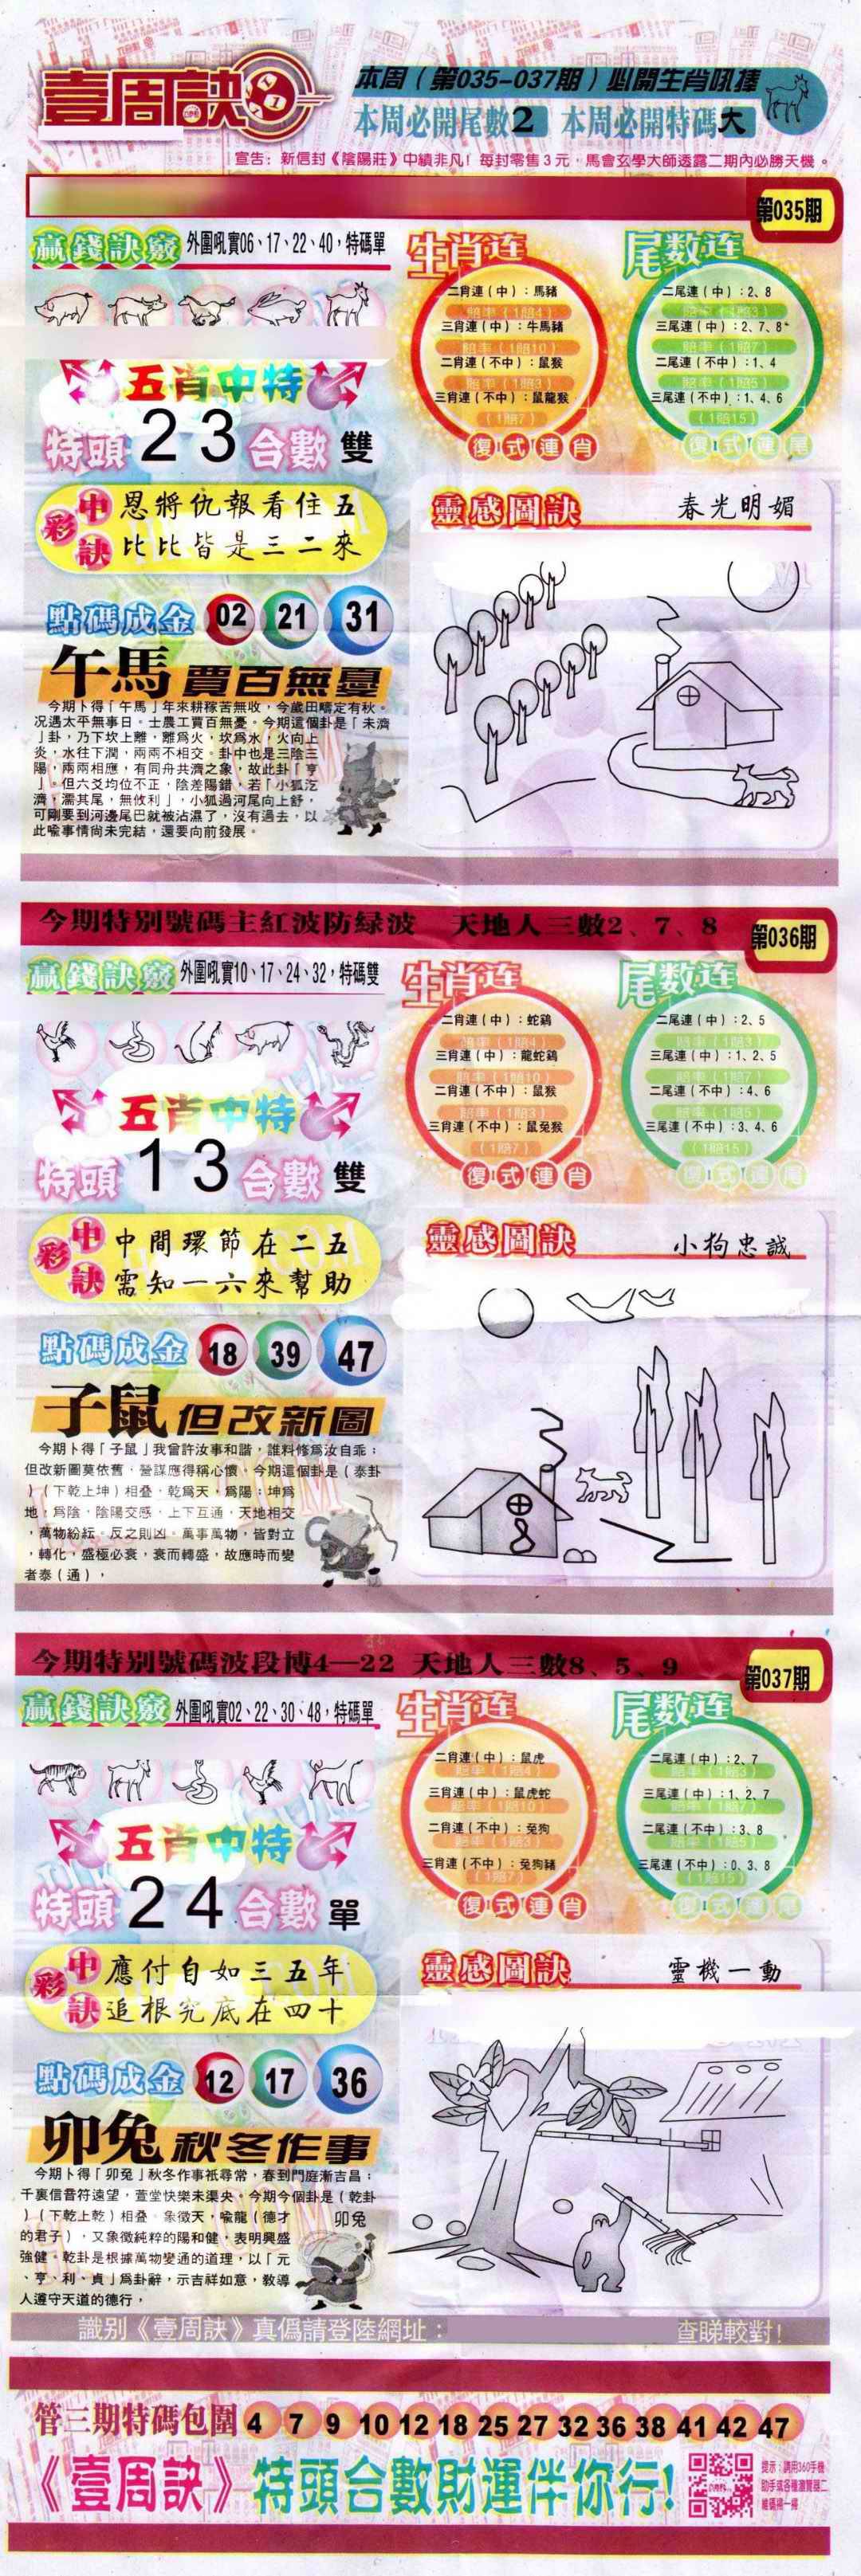 壹周訣
本周（第035-037期）必開生肖吼揰
本周必開尾數2 本周必開特碼大
宣告：新信封《陰陽莊》中績非凡！每封零售3元，馬會玄學大師透露二期內必勝天機。
第035期
贏錢訣竅 外圍吼實06、17、22、40，特碼單
五肖中特
特頭 2 3 合數 雙
中彩訣
恩將仇報看住五
比比皆是三二來
點碼成金 02 21 31
午馬 賈百無憂
今期卜得「午馬」年來耕稼苦無收，今歲田疇定有秋。
況遇太平無事日。士農工賈百無憂。今期這個卦是「未濟
」卦，乃下坎上離，離爲火，坎爲水，火向上
炎，水往下潤，兩兩不相交。卦中也是三陰三
陽，兩兩相應，有同舟共濟之象，故此卦「亨
」。但六爻均位不正，陰差陽錯，若「小狐汔
濟，濡其尾，無攸利」，小狐過河尾向上舒，
可剛要到河邊尾巴就被沾濕了，沒有過去，以
此喻事情尚未完結，還要向前發展。
生肖连
二肖連（中）：馬豬
賠率（1賠4）
三肖連（中）：牛馬豬
賠率（1賠10）
二肖連（不中）：鼠猴
賠率（1賠3）
三肖連（不中）：鼠龍猴
（1賠7）
復式連肖
尾数连
二尾連（中）：2、8
賠率（1賠3）
三尾連（中）：2、7、8
賠率（1賠7）
二尾連（不中）：1、4
賠率（1賠5）
三尾連（不中）：1、4、6
（1賠15）
復式連尾
靈感圖訣 春光明媚
今期特別號碼主紅波防緑波 天地人三數2、7、8
第036期
贏錢訣竅 外圍吼實10、17、24、32，特碼雙
五肖中特
特頭 1 3 合數 雙
中彩訣
中間環節在二五
需知一六來幫助
點碼成金 18 39 47
子鼠 但改新圖
今期卜得「子鼠」我會許汝事和諧，誰料修爲汝自乖；
但改新圖莫依舊，營謀應得稱心懷。今期這個卦是（泰卦
）（下乾上坤）相叠，乾爲天，爲陽；坤爲
地，爲陰，陰陽交感，上下互通，天地相交
，萬物紛紜。反之則凶。萬事萬物，皆對立
，轉化，盛極必衰，衰而轉盛，故應時而變
者泰（通），
生肖连
二肖連（中）：蛇鷄
賠率（1賠4）
三肖連（中）：龍蛇鷄
賠率（1賠10）
二肖連（不中）：鼠猴
賠率（1賠3）
三肖連（不中）：鼠兔猴
（1賠7）
復式連肖
尾数连
二尾連（中）：2、5
賠率（1賠3）
三尾連（中）：1、2、5
賠率（1賠7）
二尾連（不中）：4、6
賠率（1賠5）
三尾連（不中）：3、4、6
（1賠15）
復式連尾
靈感圖訣 小狗忠誠
今期特別號碼波段博4—22 天地人三數8、5、9
第037期
贏錢訣竅 外圍吼實02、22、30、48，特碼單
五肖中特
特頭 2 4 合數 單
中彩訣
應付自如三五年
追根究底在四十
點碼成金 12 17 36
卯兔 秋冬作事
今期卜得「卯兔」秋冬作事衹尋常，春到門庭漸吉昌；
千裏信音符遠望，萱堂快樂未渠央。今期今個卦是（乾卦
）（下乾上乾）相叠。象徵天，喻龍（德才
的君子），又象徵純粹的陽和健，表明興盛
強健。乾卦是根據萬物變通的道理，以「元
、亨、利、貞」爲卦辭，示吉祥如意，教導
人遵守天道的德行，
卯兔
生肖连
二肖連（中）：鼠虎
賠率（1賠4）
三肖連（中）：鼠虎蛇
賠率（1賠10）
二肖連（不中）：兔狗
賠率（1賠3）
三肖連（不中）：兔狗豬
（1賠7）
復式連肖
尾数连
二尾連（中）：2、7
賠率（1賠3）
三尾連（中）：1、2、7
賠率（1賠7）
二尾連（不中）：3、8
賠率（1賠5）
三尾連（不中）：0、3、8
（1賠15）
復式連尾
靈感圖訣 靈機一動
識別《壹周訣》真僞請登陸網址： 查睇較對！
管三期特碼包圍 4 7 9 10 12 18 25 27 32 36 38 41 42 47
《壹周訣》特頭合數財運伴你行！
提示：請用360手機
助手或各種瀏覽器二
維碼掃一掃